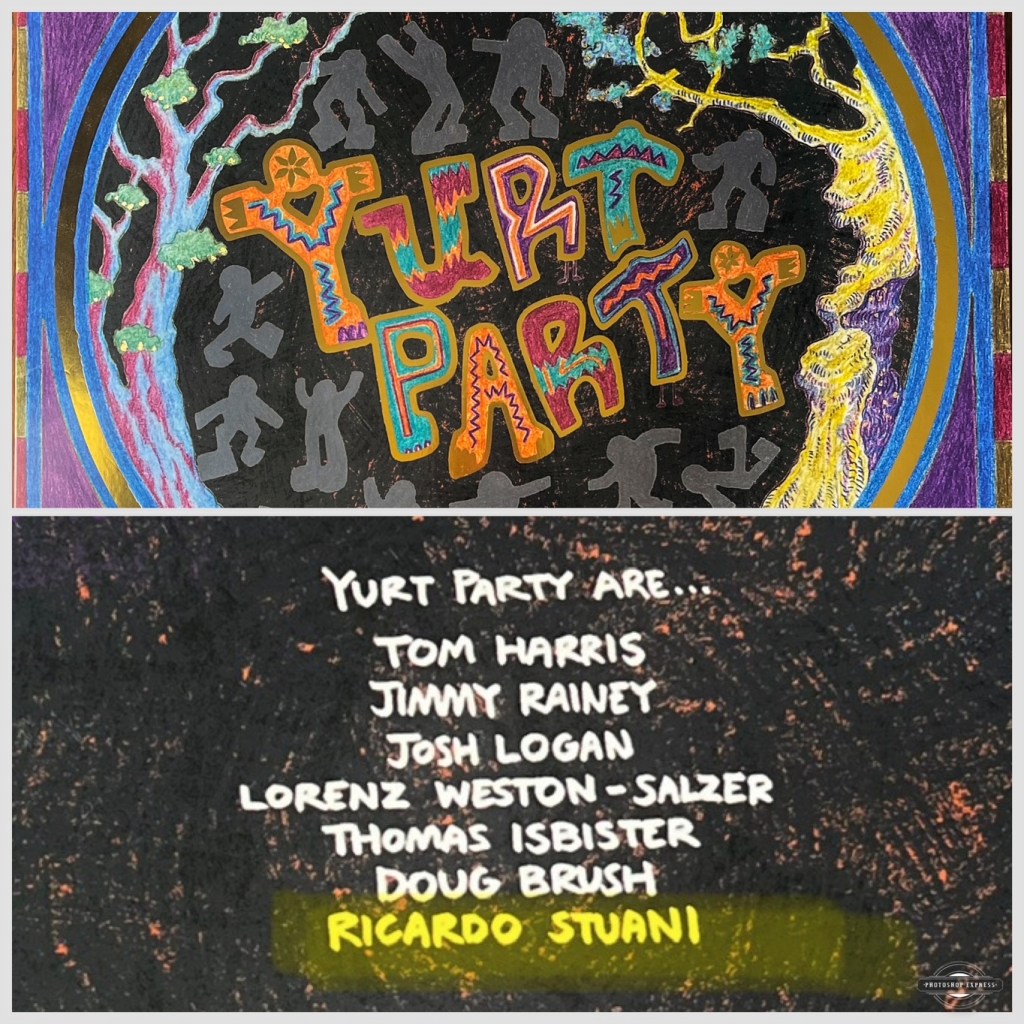 YURT
PARTY
YURT PARTY ARE...
TOM HARRIS
JIMMY RAINEY
JOSH LOGAN
LORENZ WESTON-SALZER
THOMAS ISBISTER
DOUG BRUSH
RICARDO STUANI
PHOTOSHOP EXPRESS